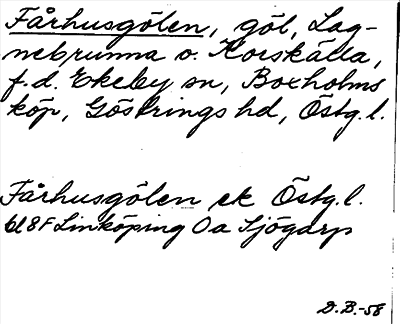 Fårhusgölen, göl, Lag-
nebrunna o. Korskälla,
f.d. Ekeby sn, Boxholms
köp, Göstrings hd, Östg.l.
Fårhusgölen ek Östg.l.
bl 8F Linköping 0a Sjögarp
D.B.-58